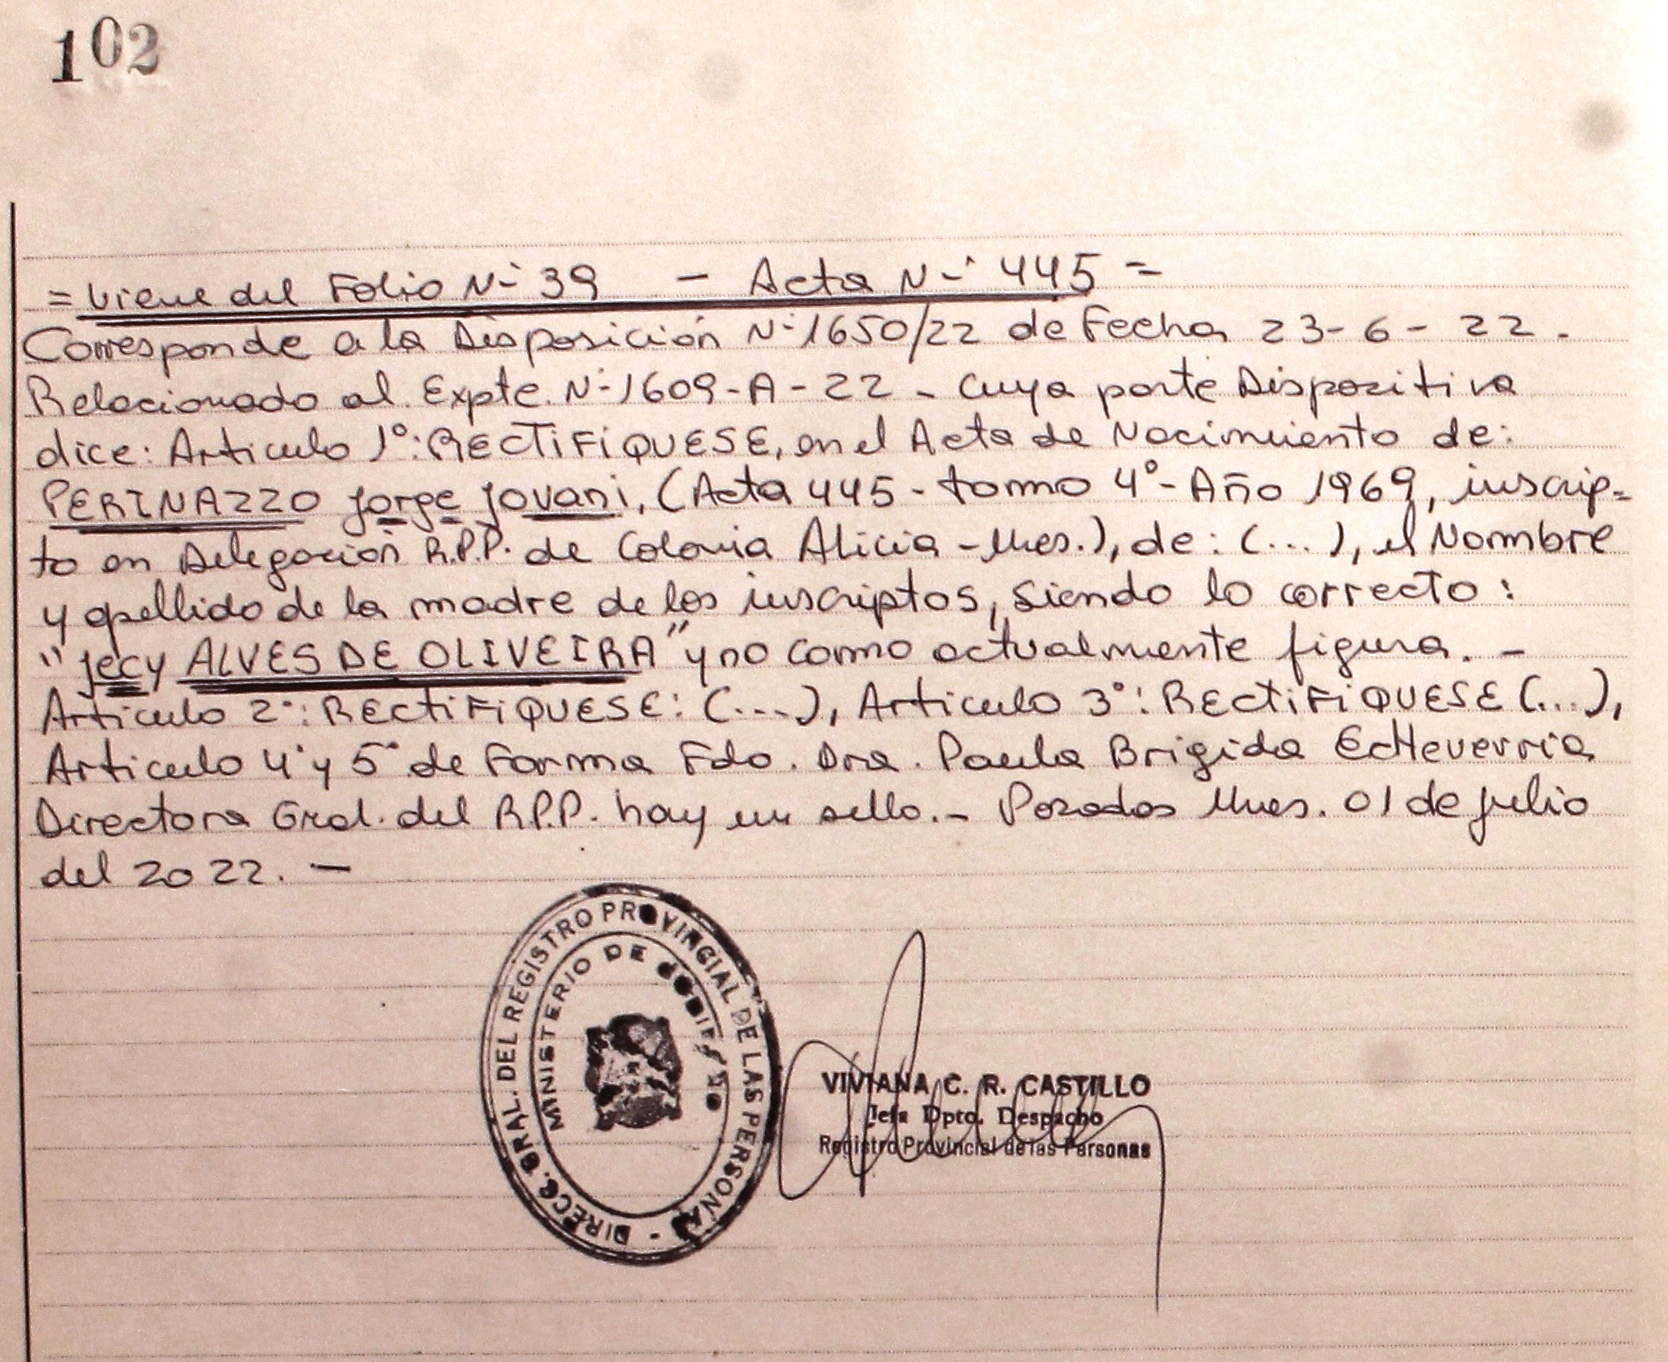 102
= Viene del Folio N-° 39 - Acta N-° 445 =
Corresponde a la Disposición N-° 1650/22 de Fecha 23-6-22.
Relacionado al Expte. N-° 1609-A-22 - Cuya parte Dispozitiva
dice: Articulo 1°: RECTIFIQUESE, en el Acta de Nacimiento de:
PERINAZZO Jorge Jovani, (Acta 445 - tomo 4° - Año 1969, inscrip=
to en Delegación R.P.P. de Colonia Alicia - Mnes.), de: (...), el Nombre
y apellido de la madre de los inscriptos, siendo lo correcto:
"Jecy ALVES DE OLIVEIRA" y no como actualmente figura. -
Articulo 2°: RECTIFIQUESE: (...), Articulo 3°: RECTIFIQUESE (...),
Articulo 4° y 5° de Forma Fdo. Dra. Paula Brigida Echeverria
Directora Gral. del R.P.P. hay un sello. - Posadas Mnes. 01 de Julio
del 2022. -
DIRECC. GRAL. DEL REGISTRO PROVINCIAL DE LAS PERSONAS -
MINISTERIO DE GOBIERNO
VIVIANA C. R. CASTILLO
Jefa Dpto. Despacho
Registro Provincial de las Personas